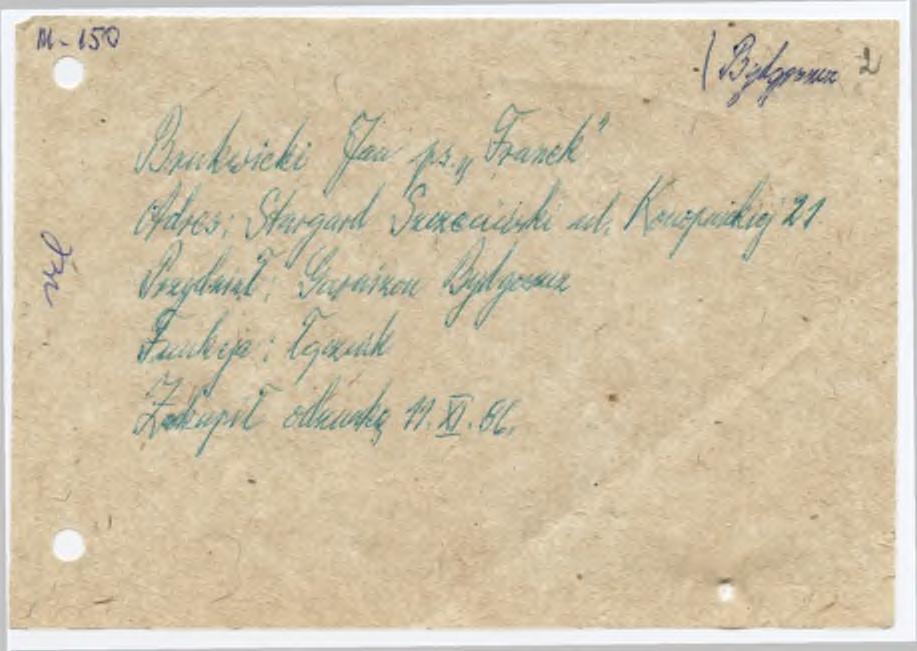 M-150
Bydgoszcz 2
Brukwicki Jan ps. „Franek"
Adres: Stargard Szczeciński ul. Konopnickiej 21
Przydział: Garnizon Bydgoszcz
Funkcja: Łącznik
Zakupił odznakę 11.XI.66.